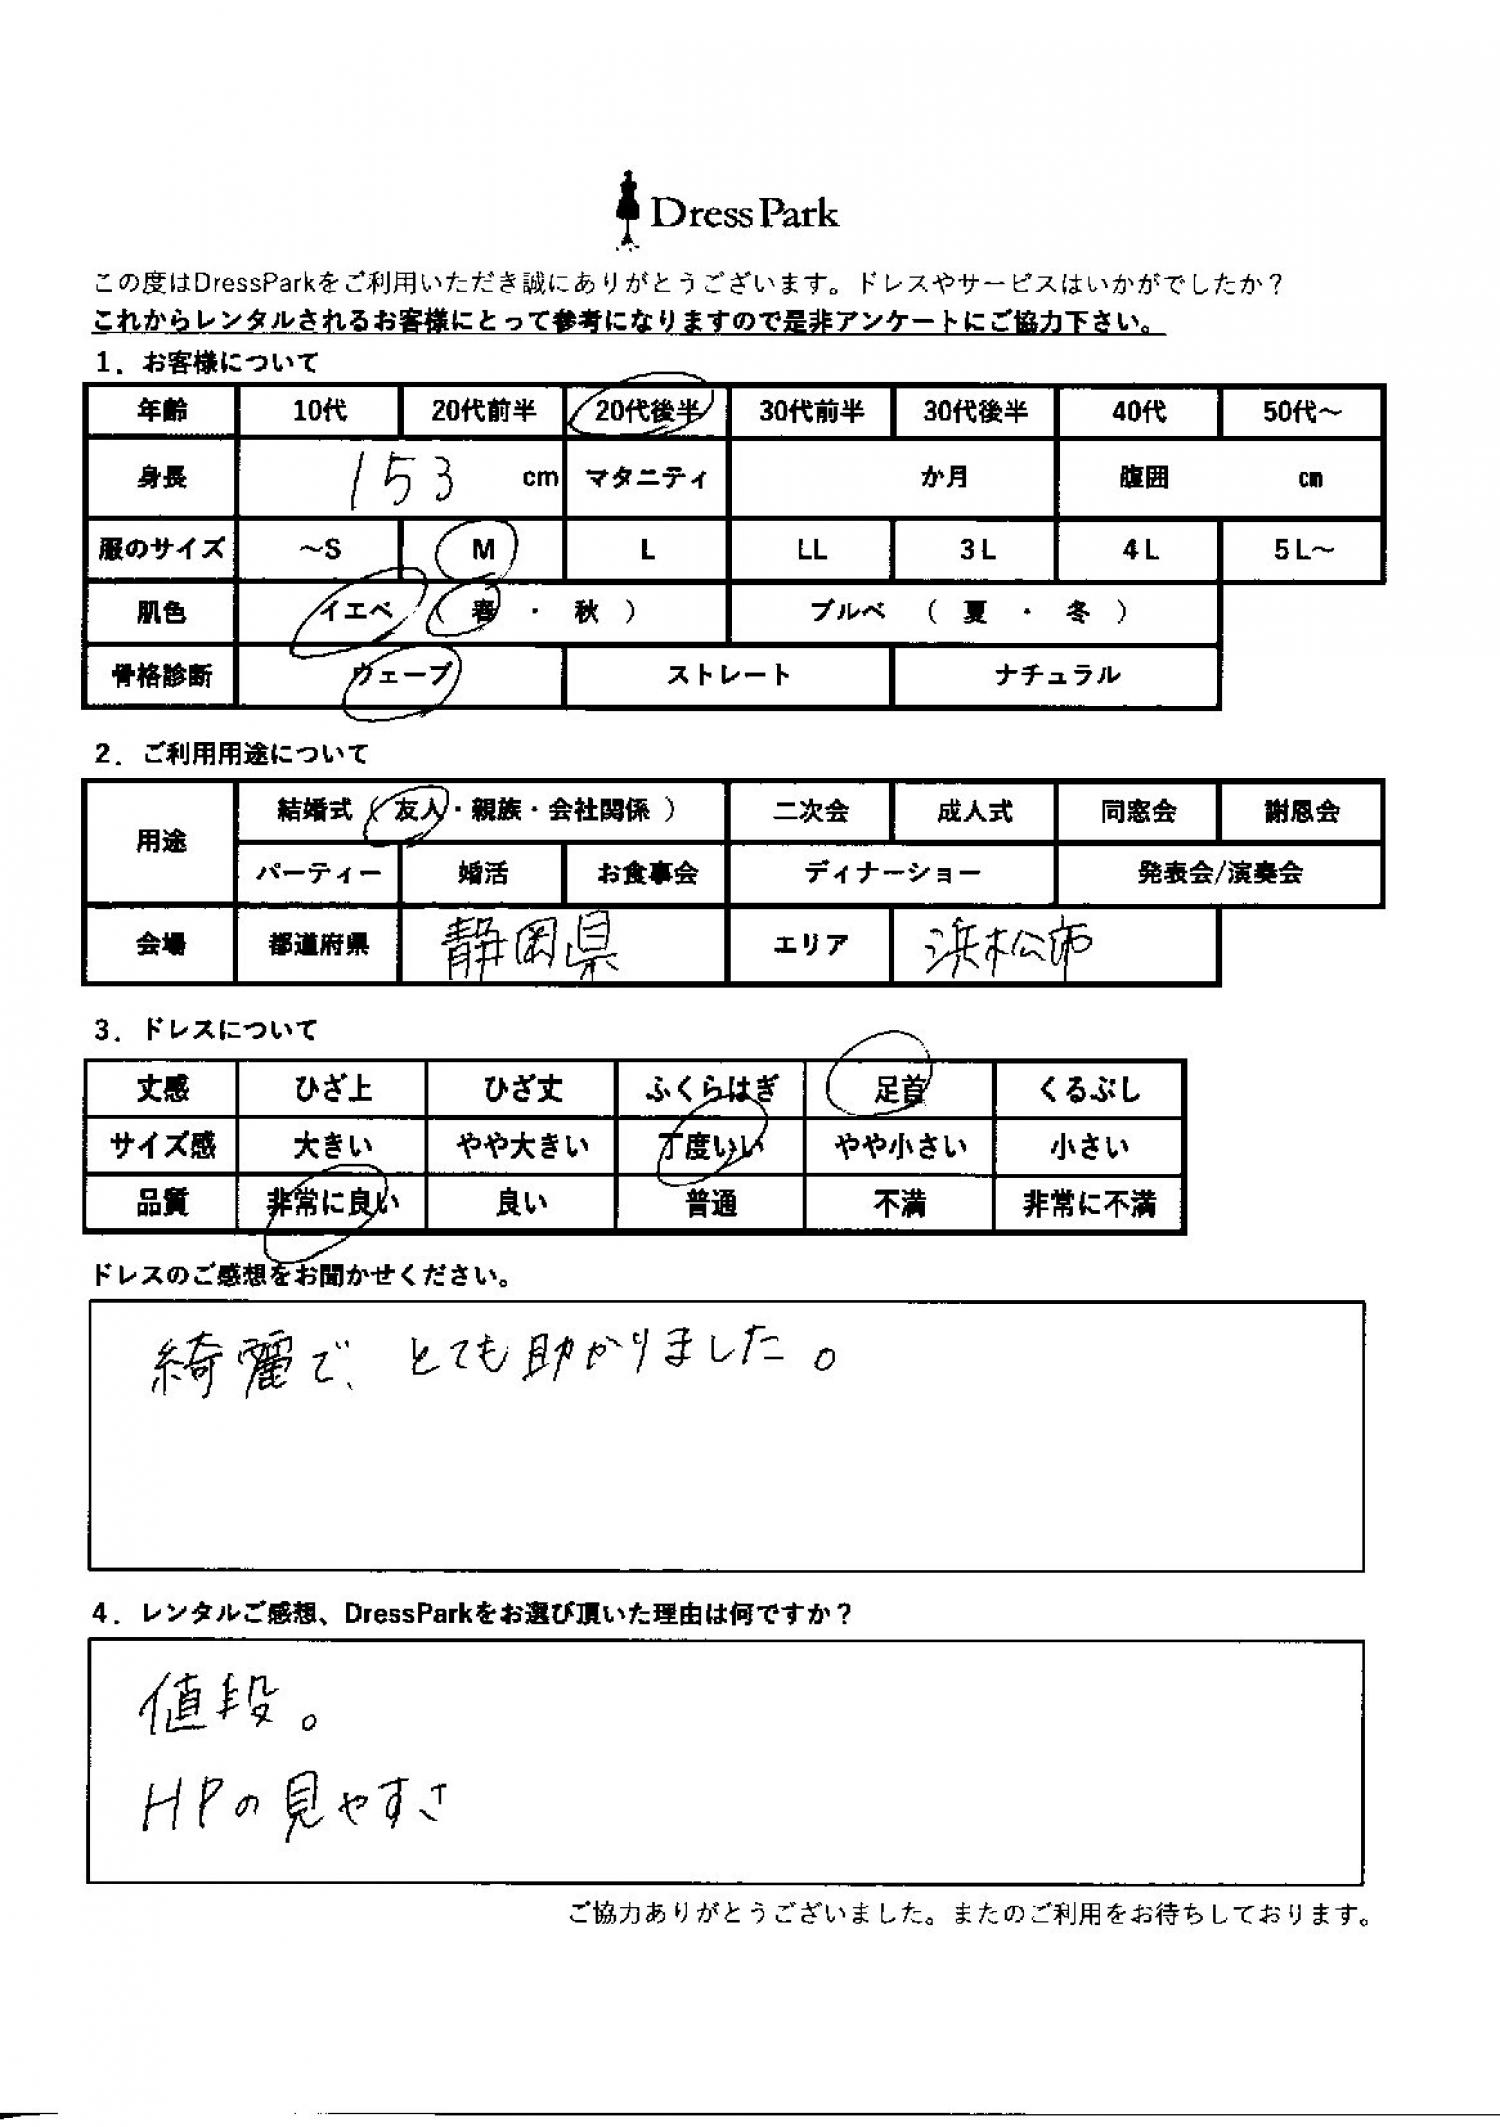 DressPark
この度はDressParkをご利用いただき誠にありがとうございます。ドレスやサービスはいかがでしたか？
これからレンタルされるお客様にとって参考になりますので是非アンケートにご協力下さい。
1．お客様について
年齢 10代 20代前半 20代後半 30代前半 30代後半 40代 50代～
身長 153 cm マタニティ か月 腹囲 cm
服のサイズ ～S M L LL 3L 4L 5L～
肌色 イエベ （ 春 ・ 秋 ） ブルベ （ 夏 ・ 冬 ）
骨格診断 ウェーブ ストレート ナチュラル
2．ご利用用途について
用途 結婚式（ 友人・親族・会社関係 ） 二次会 成人式 同窓会 謝恩会
パーティー 婚活 お食事会 ディナーショー 発表会/演奏会
会場 都道府県 静岡県 エリア 浜松市
3．ドレスについて
丈感 ひざ上 ひざ丈 ふくらはぎ 足首 くるぶし
サイズ感 大きい やや大きい 丁度いい やや小さい 小さい
品質 非常に良い 良い 普通 不満 非常に不満
ドレスのご感想をお聞かせください。
綺麗で、とても助かりました。
4．レンタルご感想、DressParkをお選び頂いた理由は何ですか？
値段。
HPの見やすさ
ご協力ありがとうございました。またのご利用をお待ちしております。